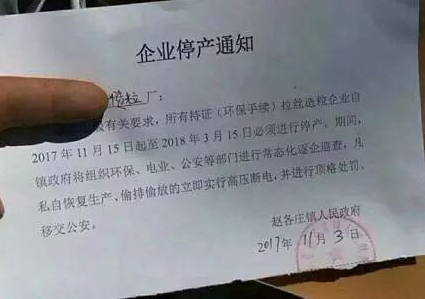 企业停产通知
粒厂：
级有关要求，所有持证（环保手续）拉丝造粒企业自
2017年11月15日起至2018年3月15日必须进行停产。期间，
镇政府将组织环保、电业、公安等部门进行常态化逐企巡查，凡
私自恢复生产、偷排偷放的立即实行高压断电，并进行顶格处罚、
移交公安。
赵各庄镇人民政府
2017年11月3日